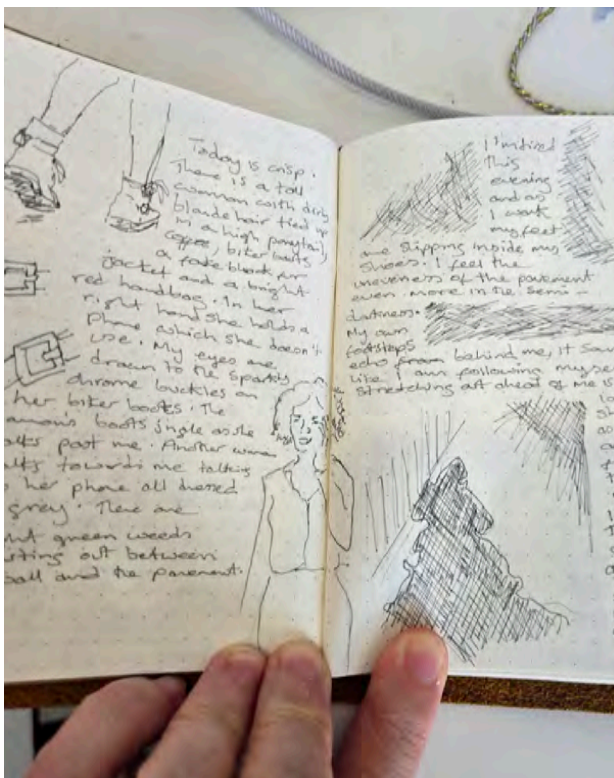 Today is crisp.
There is a tall
woman with dirty
blonde hair tied up
in a high ponytail,
coffee, biker boots
a fade black fur
jacket and a bright
red handbag. In her
right hand she holds a
phone which she doesn't
use. My eyes are
drawn to the sparkly
chrome buckles on
her biker boots. The
boots jingle as she
past me. Another woman
towards me talking
her phone all dressed
grey. There are
green weeds
out between
and the pavement.
I'm tired
this
evening
and as
I walk
my feet
are slipping inside my
shoes. I feel the
uneveness of the pavement
even more in the semi-
darkness.
My own
footsteps
echo from behind me, it
like I am following
stretching out ahead of me